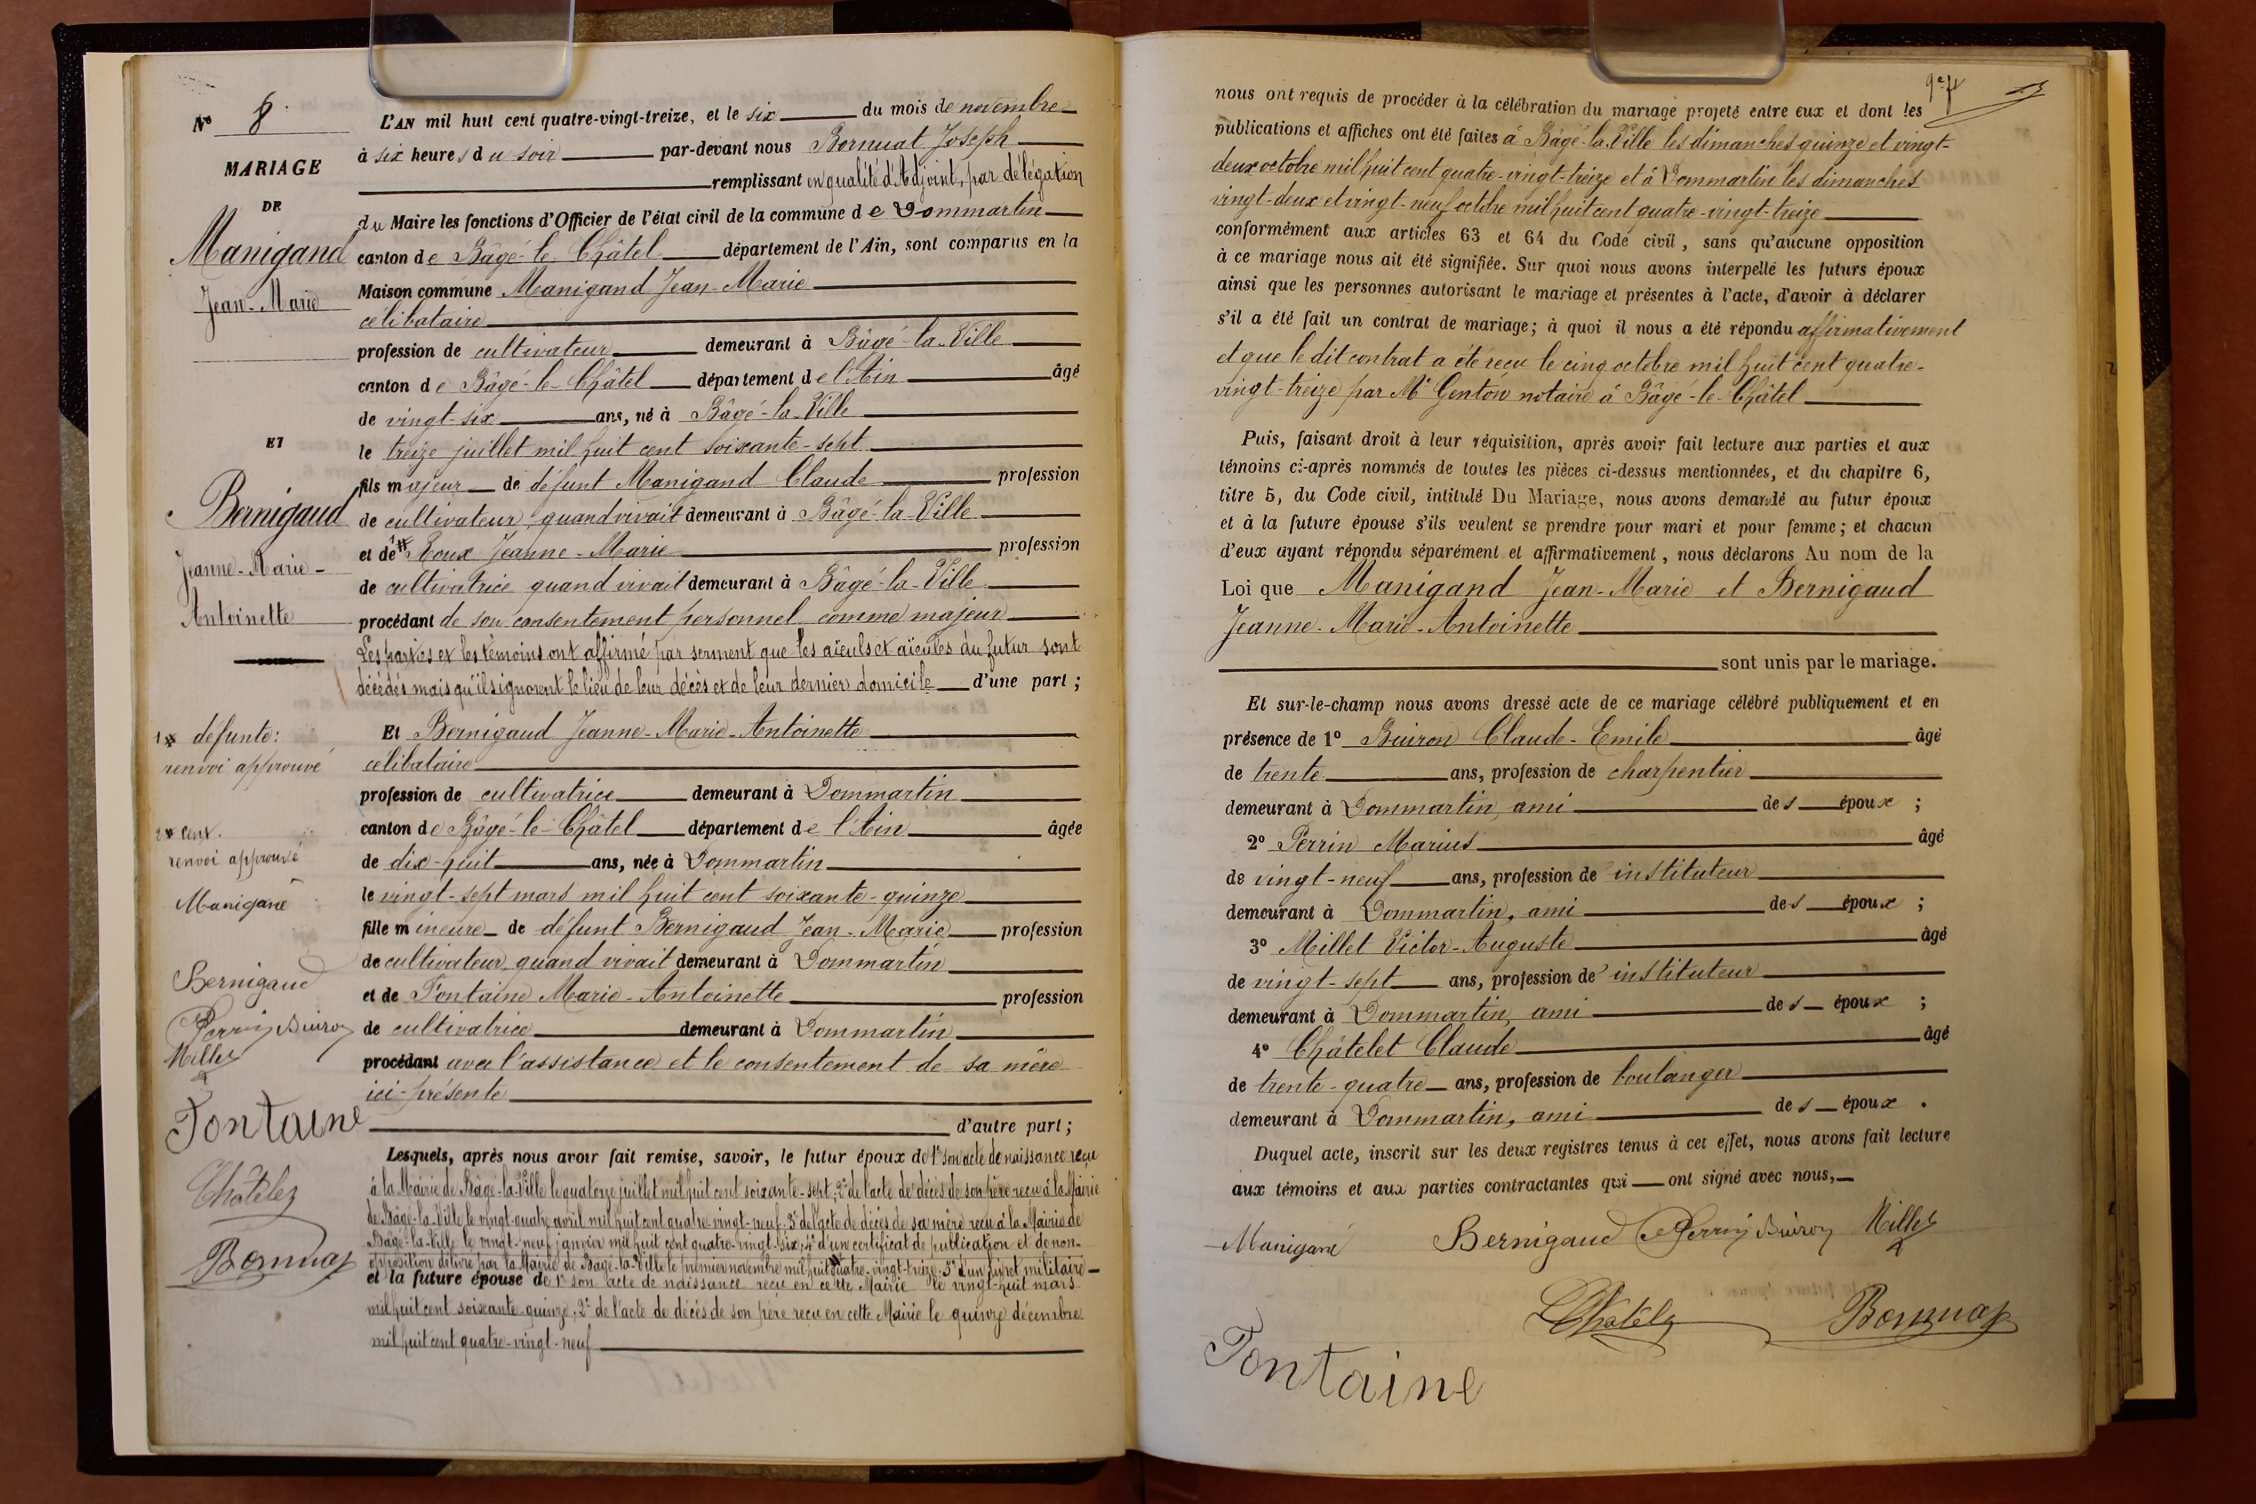 N° 8.
MARIAGE
DE
Manigand
Jean-Marie
ET
Bernigaud
Jeanne-Marie-
Antoinette
1 défunte:
renvoi approuvé
2 cent.
renvoi approuvé
Manigand
Bernigaud
Perrin Buiron
Millet
Fontaine
Châtelet
Bornuat
L'AN mil huit cent quatre-vingt-treize, et le six du mois de novembre
à six heures du soir par-devant nous Bornuat Joseph
remplissant en qualité d'Adjoint, par délégation
du Maire les fonctions d'Officier de l'état civil de la commune de Dommartin
canton de Bâgé-le-Châtel département de l'Ain, sont comparus en la
Maison commune Manigand Jean-Marie
célibataire
profession de cultivateur demeurant à Bâgé-la-Ville
canton de Bâgé-le-Châtel département de l'Ain âgé
de vingt-six ans, né à Bâgé-la-Ville
le treize juillet mil huit cent soixante-sept
fils majeur de défunt Manigand Claude profession
de cultivateur quand vivait demeurant à Bâgé-la-Ville
et de 1 Roux Jeanne-Marie profession
de cultivatrice quand vivait demeurant à Bâgé-la-Ville
procédant de son consentement personnel comme majeur
Les parties et les témoins ont affirmé par serment que les aïeuls et aïeules du futur sont
décédés mais qu'ils ignorent le lieu de leur décès et de leur dernier domicile d'une part;
Et Bernigaud Jeanne-Marie-Antoinette
célibataire
profession de cultivatrice demeurant à Dommartin
canton de Bâgé-le-Châtel département de l'Ain âgée
de dix-huit ans, née à Dommartin
le vingt-sept mars mil huit cent soixante-quinze
fille mineure de défunt Bernigaud Jean-Marie profession
de cultivateur quand vivait demeurant à Dommartin
et de Fontaine Marie-Antoinette profession
de cultivatrice demeurant à Dommartin
procédant avec l'assistance et le consentement de sa mère
ici-présente
d'autre part;
Lesquels, après nous avoir fait remise, savoir, le futur époux de 1° son acte de naissance reçu
à la Mairie de Bâgé-la-Ville le quatorze juillet mil huit cent soixante-sept; 2° de l'acte de décès de son père reçu à la Mairie
de Bâgé-la-Ville le vingt-quatre avril mil huit cent quatre-vingt-neuf; 3° de l'acte de décès de sa mère reçu à la Mairie de
Bâgé-la-Ville le vingt-neuf janvier mil huit cent quatre-vingt-six; 4° d'un certificat de publication et de non-
opposition délivré par la Mairie de Bâgé-la-Ville le premier novembre mil huit quatre-vingt-treize; 5° d'un livret militaire
et la future épouse de 1° son acte de naissance reçu en cette Mairie le vingt-huit mars
mil huit cent soixante-quinze; 2° de l'acte de décès de son père reçu en cette Mairie le quinze décembre
mil huit cent quatre-vingt-neuf
nous ont requis de procéder à la célébration du mariage projeté entre eux et dont les
publications et affiches ont été faites à Bâgé-la-Ville les dimanches quinze et vingt-
deux octobre mil huit cent quatre-vingt-treize et à Dommartin les dimanches
vingt-deux et vingt-neuf octobre mil huit cent quatre-vingt-treize
conformément aux articles 63 et 64 du Code civil, sans qu'aucune opposition
à ce mariage nous ait été signifiée. Sur quoi nous avons interpellé les futurs époux
ainsi que les personnes autorisant le mariage et présentes à l'acte, d'avoir à déclarer
s'il a été fait un contrat de mariage; à quoi il nous a été répondu affirmativement
et que le dit contrat a été reçu le cinq octobre mil huit cent quatre-
vingt-treize par Me Genton notaire à Bâgé-le-Châtel
Puis, faisant droit à leur réquisition, après avoir fait lecture aux parties et aux
témoins ci-après nommés de toutes les pièces ci-dessus mentionnées, et du chapitre 6,
titre 5, du Code civil, intitulé Du Mariage, nous avons demandé au futur époux
et à la future épouse s'ils veulent se prendre pour mari et pour femme; et chacun
d'eux ayant répondu séparément et affirmativement, nous déclarons Au nom de la
Loi que Manigand Jean-Marie et Bernigaud
Jeanne-Marie-Antoinette
sont unis par le mariage.
Et sur-le-champ nous avons dressé acte de ce mariage célébré publiquement et en
présence de 1° Buiron Claude-Emile âgé
de trente ans, profession de charpentier
demeurant à Dommartin, ami des époux;
2° Perrin Marius âgé
de vingt-neuf ans, profession de instituteur
demeurant à Dommartin, ami des époux;
3° Millet Victor-Auguste âgé
de vingt-sept ans, profession de instituteur
demeurant à Dommartin, ami des époux;
4° Châtelet Claude âgé
de trente-quatre ans, profession de boulanger
demeurant à Dommartin, ami des époux.
Duquel acte, inscrit sur les deux registres tenus à cet effet, nous avons fait lecture
aux témoins et aux parties contractantes qui ont signé avec nous,
Manigand Bernigaud Perrin Buiron Millet
Châtelet Bornuat
Fontaine